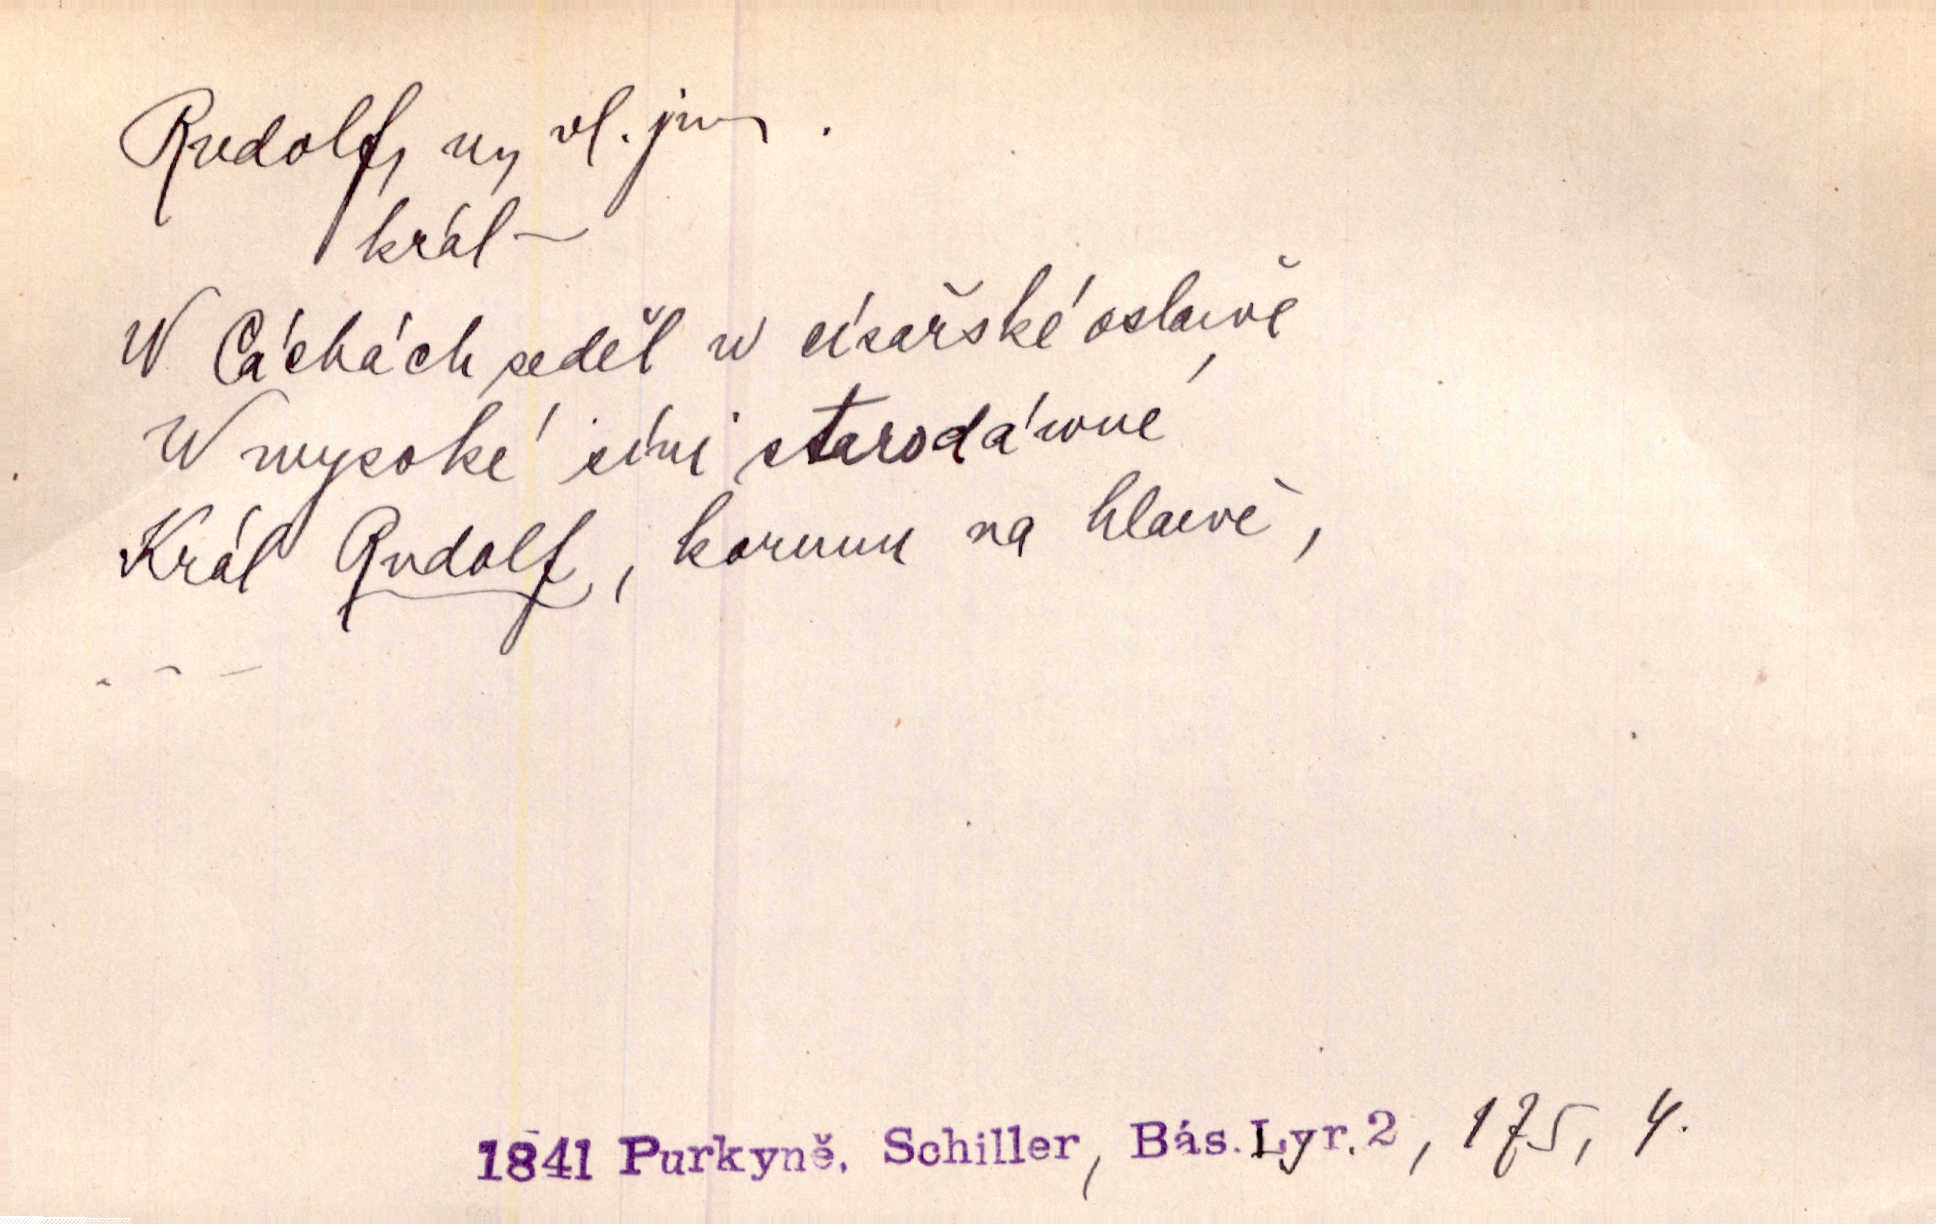 Rudolf, u, vl. jm.
král –
W Cáchách seděl w císařské oslawě,
W wysoké síni starodáwné
Král Rudolf, korunu na hlawě,
- - -
1841 Purkyně. Schiller, Bás. Lyr. 2, 175, 4.